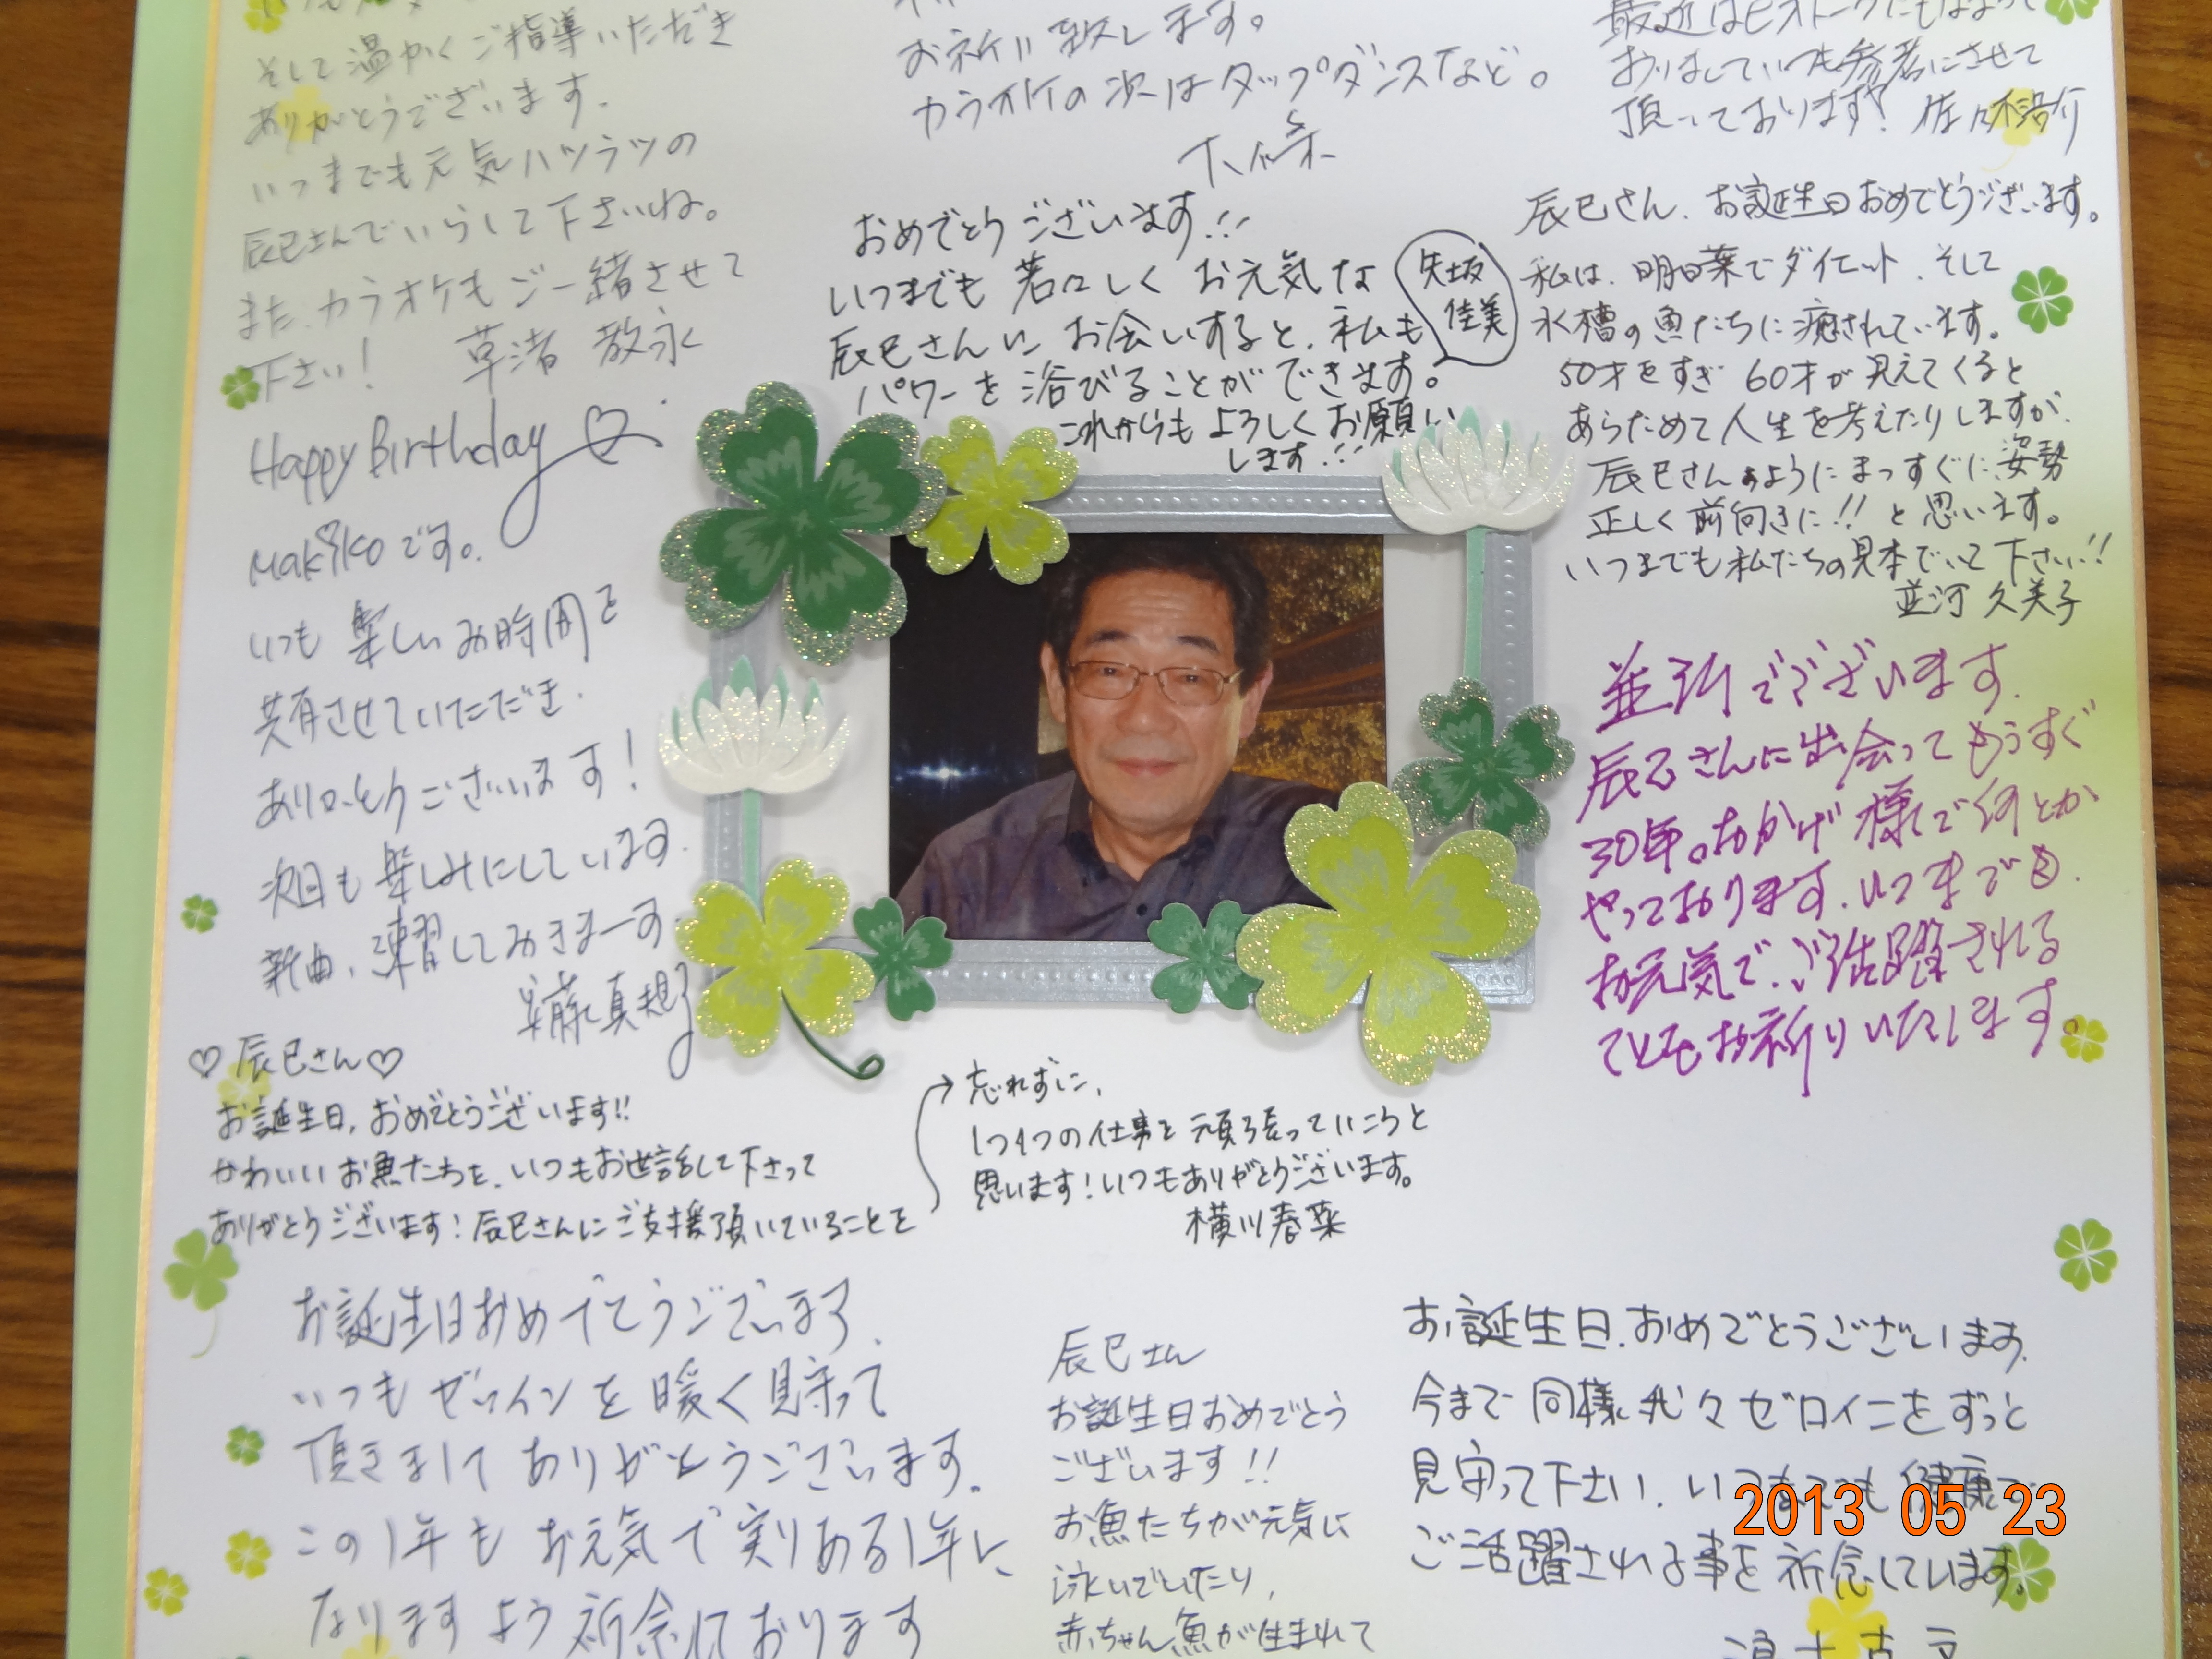 そして温かくご指導いただき
ありがとうございます。
いつまでも元気ハツラツの
辰巳さんでいらして下さいね。
また、カラオケもご一緒させて
下さい！
草渚 教永
お祈り致します。
カラオケの次はタップダンスなど。
最近はビオトープにもはまって
おりましていつも参考にさせて
頂いております! 佐々木
おめでとうございます!!
いつまでも若々しくお元気な
辰巳さんにお会いすると、私も
パワーを浴びることができます。
これからもよろしくお願い
します!!
矢坂
佳美
辰巳さん、お誕生日おめでとうございます。
私は、明日葉でダイエット、そして
水槽の魚たちに癒されています。
50才をすぎ 60才が見えてくると
あらためて人生を考えたりしますが、
辰巳さんのようにまっすぐに姿勢
正しく前向きに!! と思います。
いつまでも私たちの見本でいて下さい!!
並河 久美子
Happy Birthday
Makikoです。
いつも楽しいお時間を
共有させていただき、
ありがとうございます！
次回も楽しみにしています。
新曲、練習してみきまーす
安藤真規子
並河でございます。
辰巳さんに出会ってもうすぐ
30年。おかげ様で何とか
やっております。いつまでも、
お元気で、ご活躍される
ことをお祈りいたします。
♡辰巳さん♡
お誕生日、おめでとうございます!!
かわいいお魚たちを、いつもお世話して下さって
ありがとうございます！辰巳さんにご支援頂いていることを
→忘れずに、
1つ1つの仕事を頑張っていこうと
思います！いつもありがとうございます。
横川春菜
お誕生日おめでとうございます。
いつもゼロインを暖く見守って
頂きましてありがとうございます。
この1年もお元気で実りある1年に
なりますよう祈念しております
辰巳さん
お誕生日おめでとう
ございます!!
お魚たちが元気に
泳いでいたり、
赤ちゃん魚が生まれて
お誕生日、おめでとうございます。
今まで同様、我々ゼロインをずっと
見守って下さい。いつまでも健康で
ご活躍される事を祈念しています。
2013 05 23